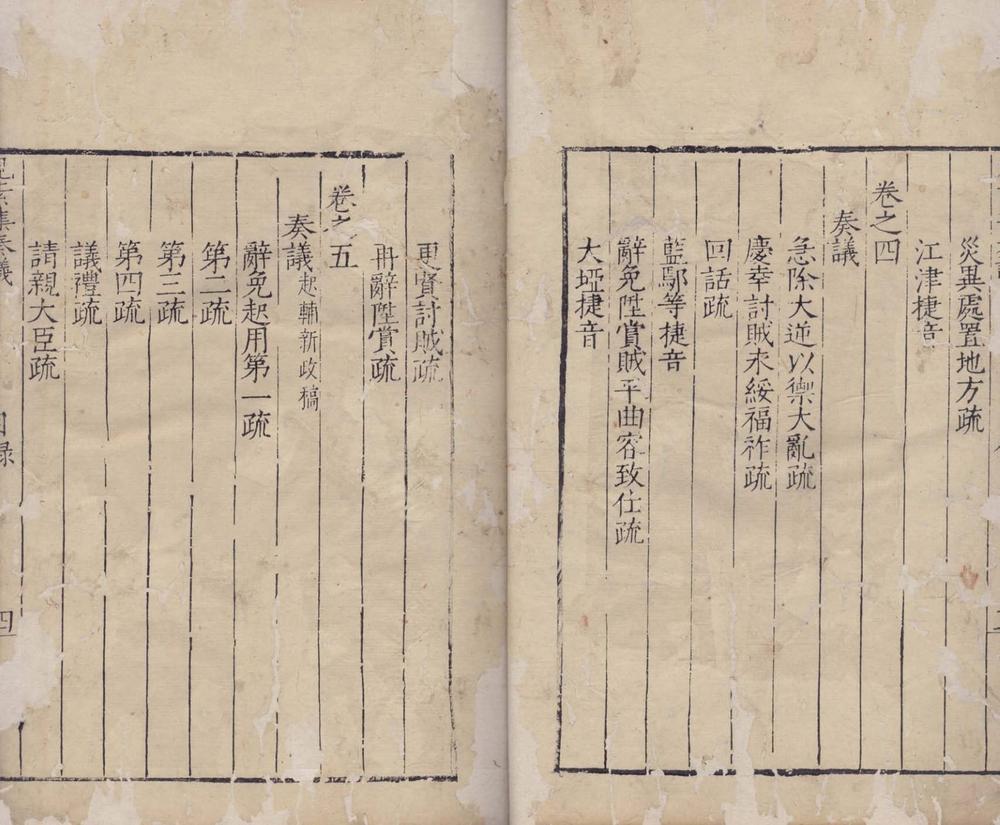 災異處置地方疏
江津捷音
卷之四
奏議
急除大逆以禦大亂疏
慶幸討賊来綏福祚疏
回話疏
藍鄢等捷音
辭免陞賞賊平曲容致仕疏
大埡捷音
更賞討賊疏
冉辭陞賞疏
卷之五
奏議 起輔新政稿
辭免起用第一疏
第二疏
第三疏
第四疏
議禮疏
請親大臣疏
見素集奏議 目录 四